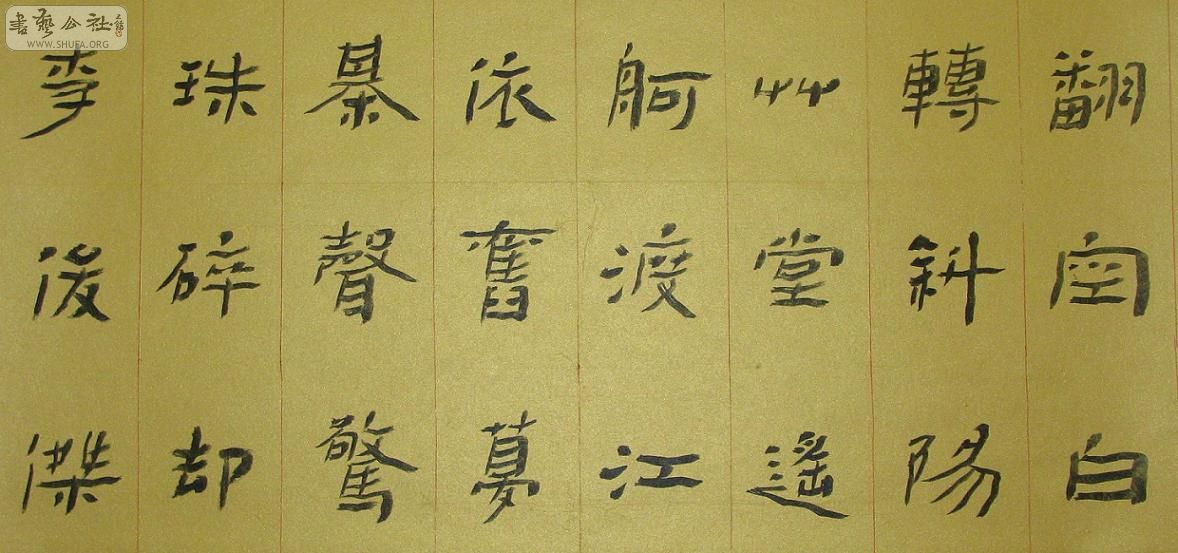 書藝公社
WWW.SHUFA.ORG
翻空白
轉斜陽
艸堂遙
舸渡江
依舊夢
棊聲驚
珠碎却
後